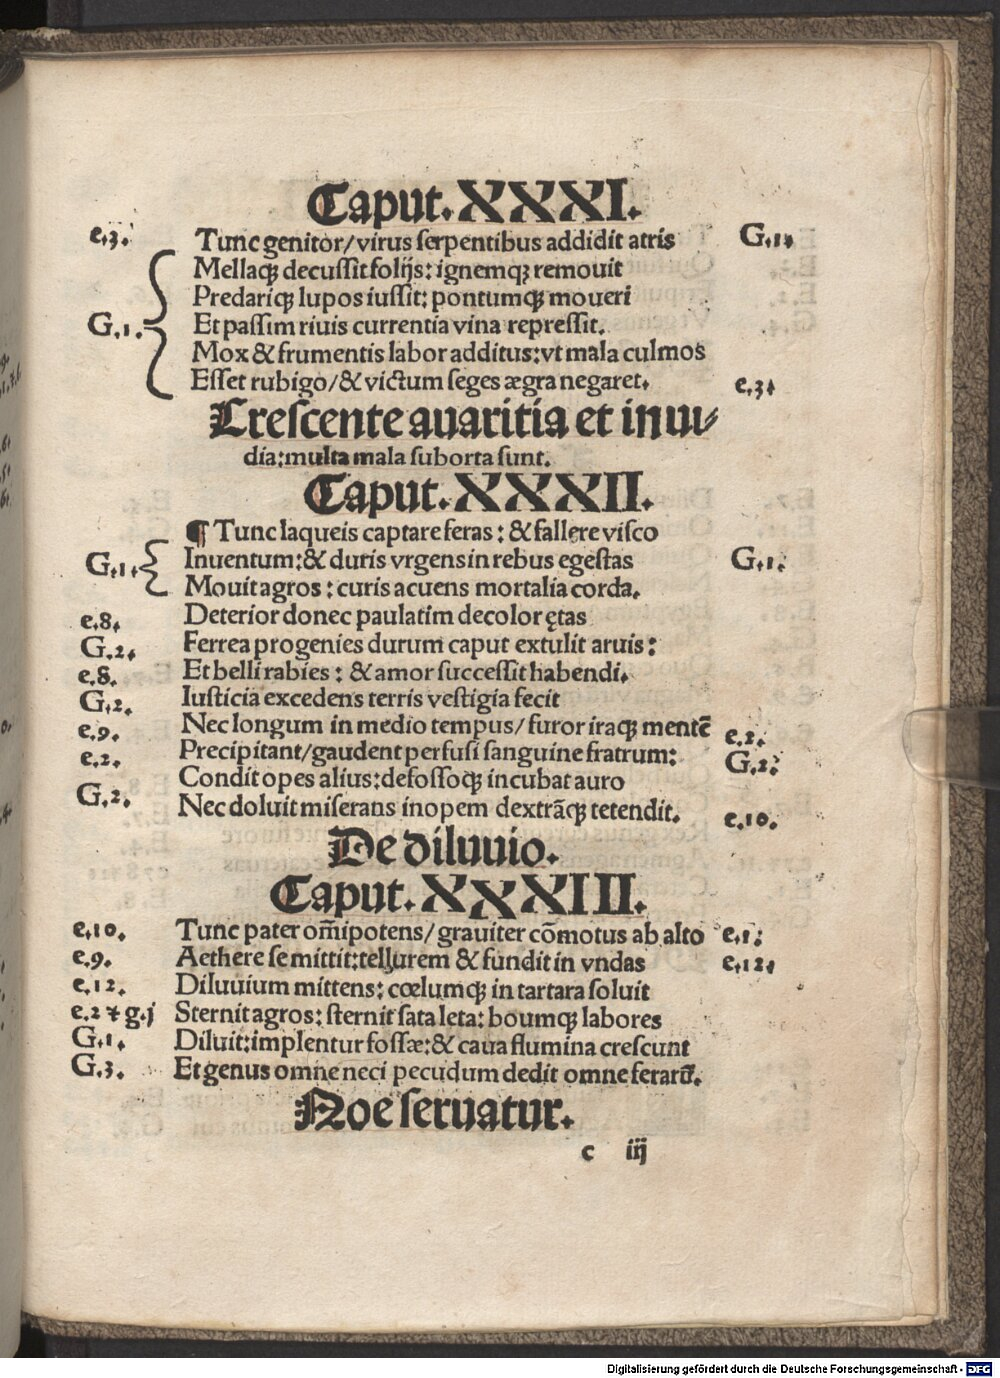 Caput. XXXI.
e.3. Tunc genitor/virus serpentibus addidit atris G.1.
Mellaqꝫ decussit folijs: ignemqꝫ remouit
Predariqꝫ lupos iussit: pontumqꝫ moueri
G.1. Et passim riuis currentia vina repressit.
Mox & frumentis labor additus: vt mala culmos
Esset rubigo/& victum seges ægra negaret. e.3.
Crescente auaritia et inui⸗
dia: multa mala suborta sunt.
Caput. XXXII.
¶ Tunc laqueis captare feras: & fallere visco
G.1. Inuentum: & duris vrgens in rebus egestas G.1.
Mouit agros: curis acuens mortalia corda.
e.8. Deterior donec paulatim decolor ętas
G.2. Ferrea progenies durum caput extulit aruis:
e.8. Et belli rabies: & amor successit habendi.
G.2. Iusticia excedens terris vestigia fecit
e.9. Nec longum in medio tempus/furor iraqꝫ mentē e.2.
e.2. Precipitant/gaudent perfusi sanguine fratrum: G.2.
Condit opes alius: defossoqꝫ incubat auro
G.2. Nec doluit miserans inopem dextrāqꝫ tetendit. e.10.
De diluuio.
Caput. XXXIII.
e.10. Tunc pater om̄ipotens/grauiter cōmotus ab alto e.1.
e.9. Aethere se mittit: tellurem & fundit in vndas e.12.
e.12. Diluuium mittens: cœlumqꝫ in tartara soluit
e.2 ⁊ g.j Sternit agros: sternit sata leta: boumqꝫ labores
G.1. Diluit: implentur fossæ: & caua flumina crescunt
G.3. Et genus omne neci pecudum dedit omne ferarū.
Noe seruatur.
c iij
Digitalisierung gefördert durch die Deutsche Forschungsgemeinschaft - DFG